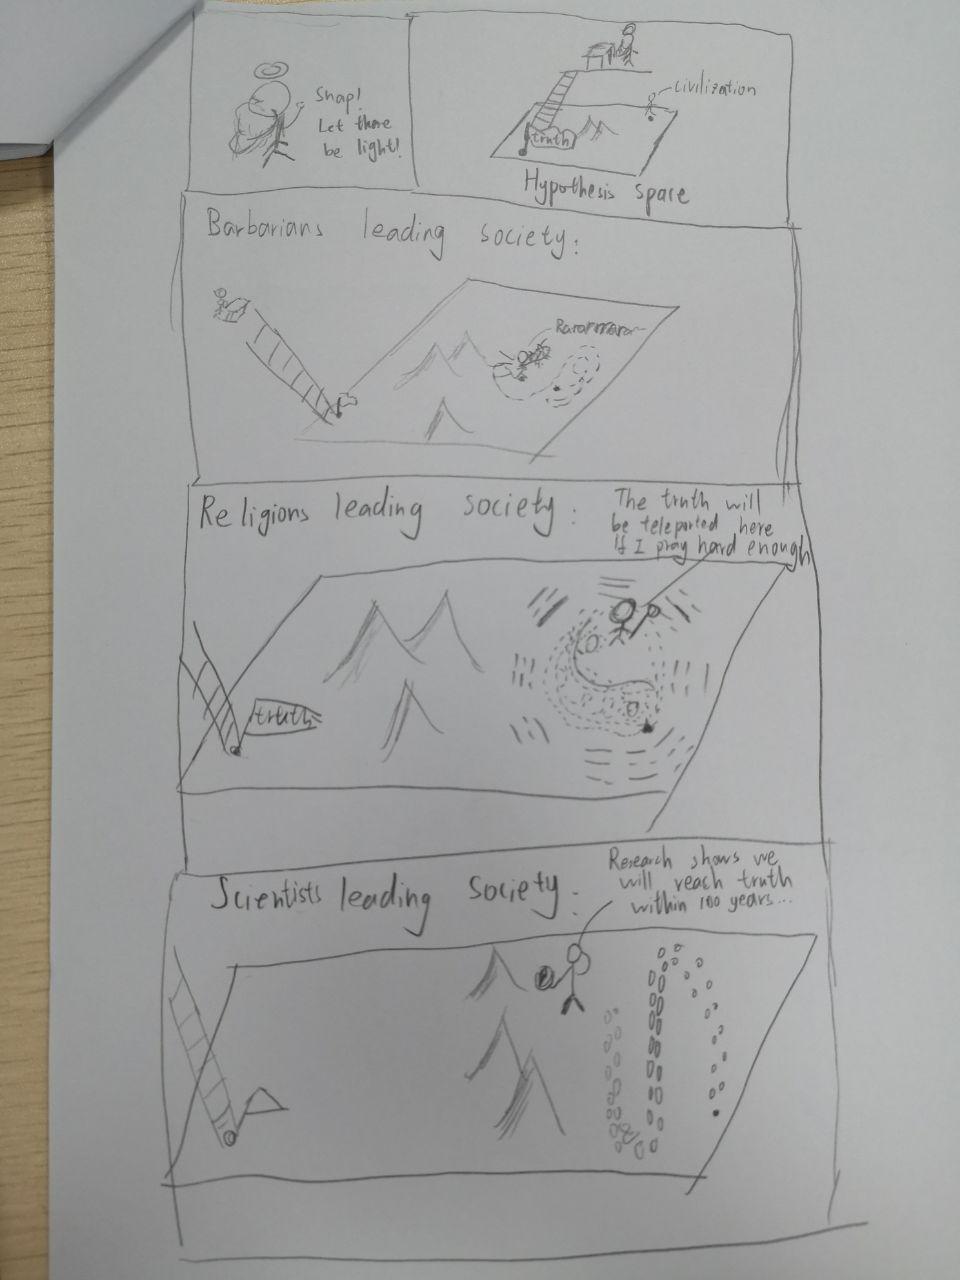 Snap!
Let there
be light!
civilization
truth
Hypothesis space
Barbarians leading society:
Religions leading society:
The truth will
be teleported here
if I pray hard enough
truth
Scientists leading society:
Research shows we
will reach truth
within 100 years...